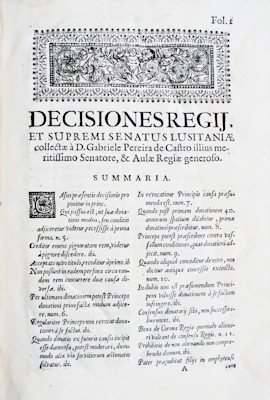 Fol. 1
DECISIONES REGIJ.
ET SUPREMI SENATUS LUSITANIÆ
collectæ à D. Gabriele Pereira de Castro illius me-
ritissimo Senatore, & Aulæ Regiæ generoso.
SUMMARIA.
CAsus præsentis decisionis pro
ponitur in princ.
Qui possui est, ut sua dona-
tioni modus, seu conditio
adjiceretur videtur recessisse à prima
forma. n. 5.
Creditor omne pignoratam rem, videtur
à pignore discedere. ibi.
Acceptans ultimam titulū, recedit à primo. ibi
Non possunt in eadem persona circa ean-
dem rem concurrere duæ causæ di-
versæ. ibi.
Per ultimam donationem potest Princeps
donationi prius factæ modum adjice-
re. n. 6.
Regulariter Princeps non revocat dona-
tionem à se factam. ibi.
Quando donatio ex futuro causis incipit
esse damnosa, potest moderari, dum-
modo alia via fortiorium æstimatio
solvatur. ibi.
In revocatione Principis causa præsu-
menda est. num. 7.
Quando post primam donationem 40.
annorum spatium dilabitur, prima
donationi præscribitur. num. 8.
Princeps potest præscribere contra vas-
sallum conditionem, suæ donationi ad-
jectam. num. 9.
Quando aliquid conceditur de novo, non
dicitur antiqua concessio extincta.
num. 10.
In dubio non est præsumendum Princi-
pem voluisse donationem à se factam
infringere. ibi.
Consensus donatarij scilicet, non succesoris
sufficit. ibi.
Bona de Corona Regia quomodo aliena-
ri valeant de consensu Regis. n. 11
Prohibitio de non alienando non compre-
hendit domum. ibi.
Pater præjudicat filiis in emphyteusi
A